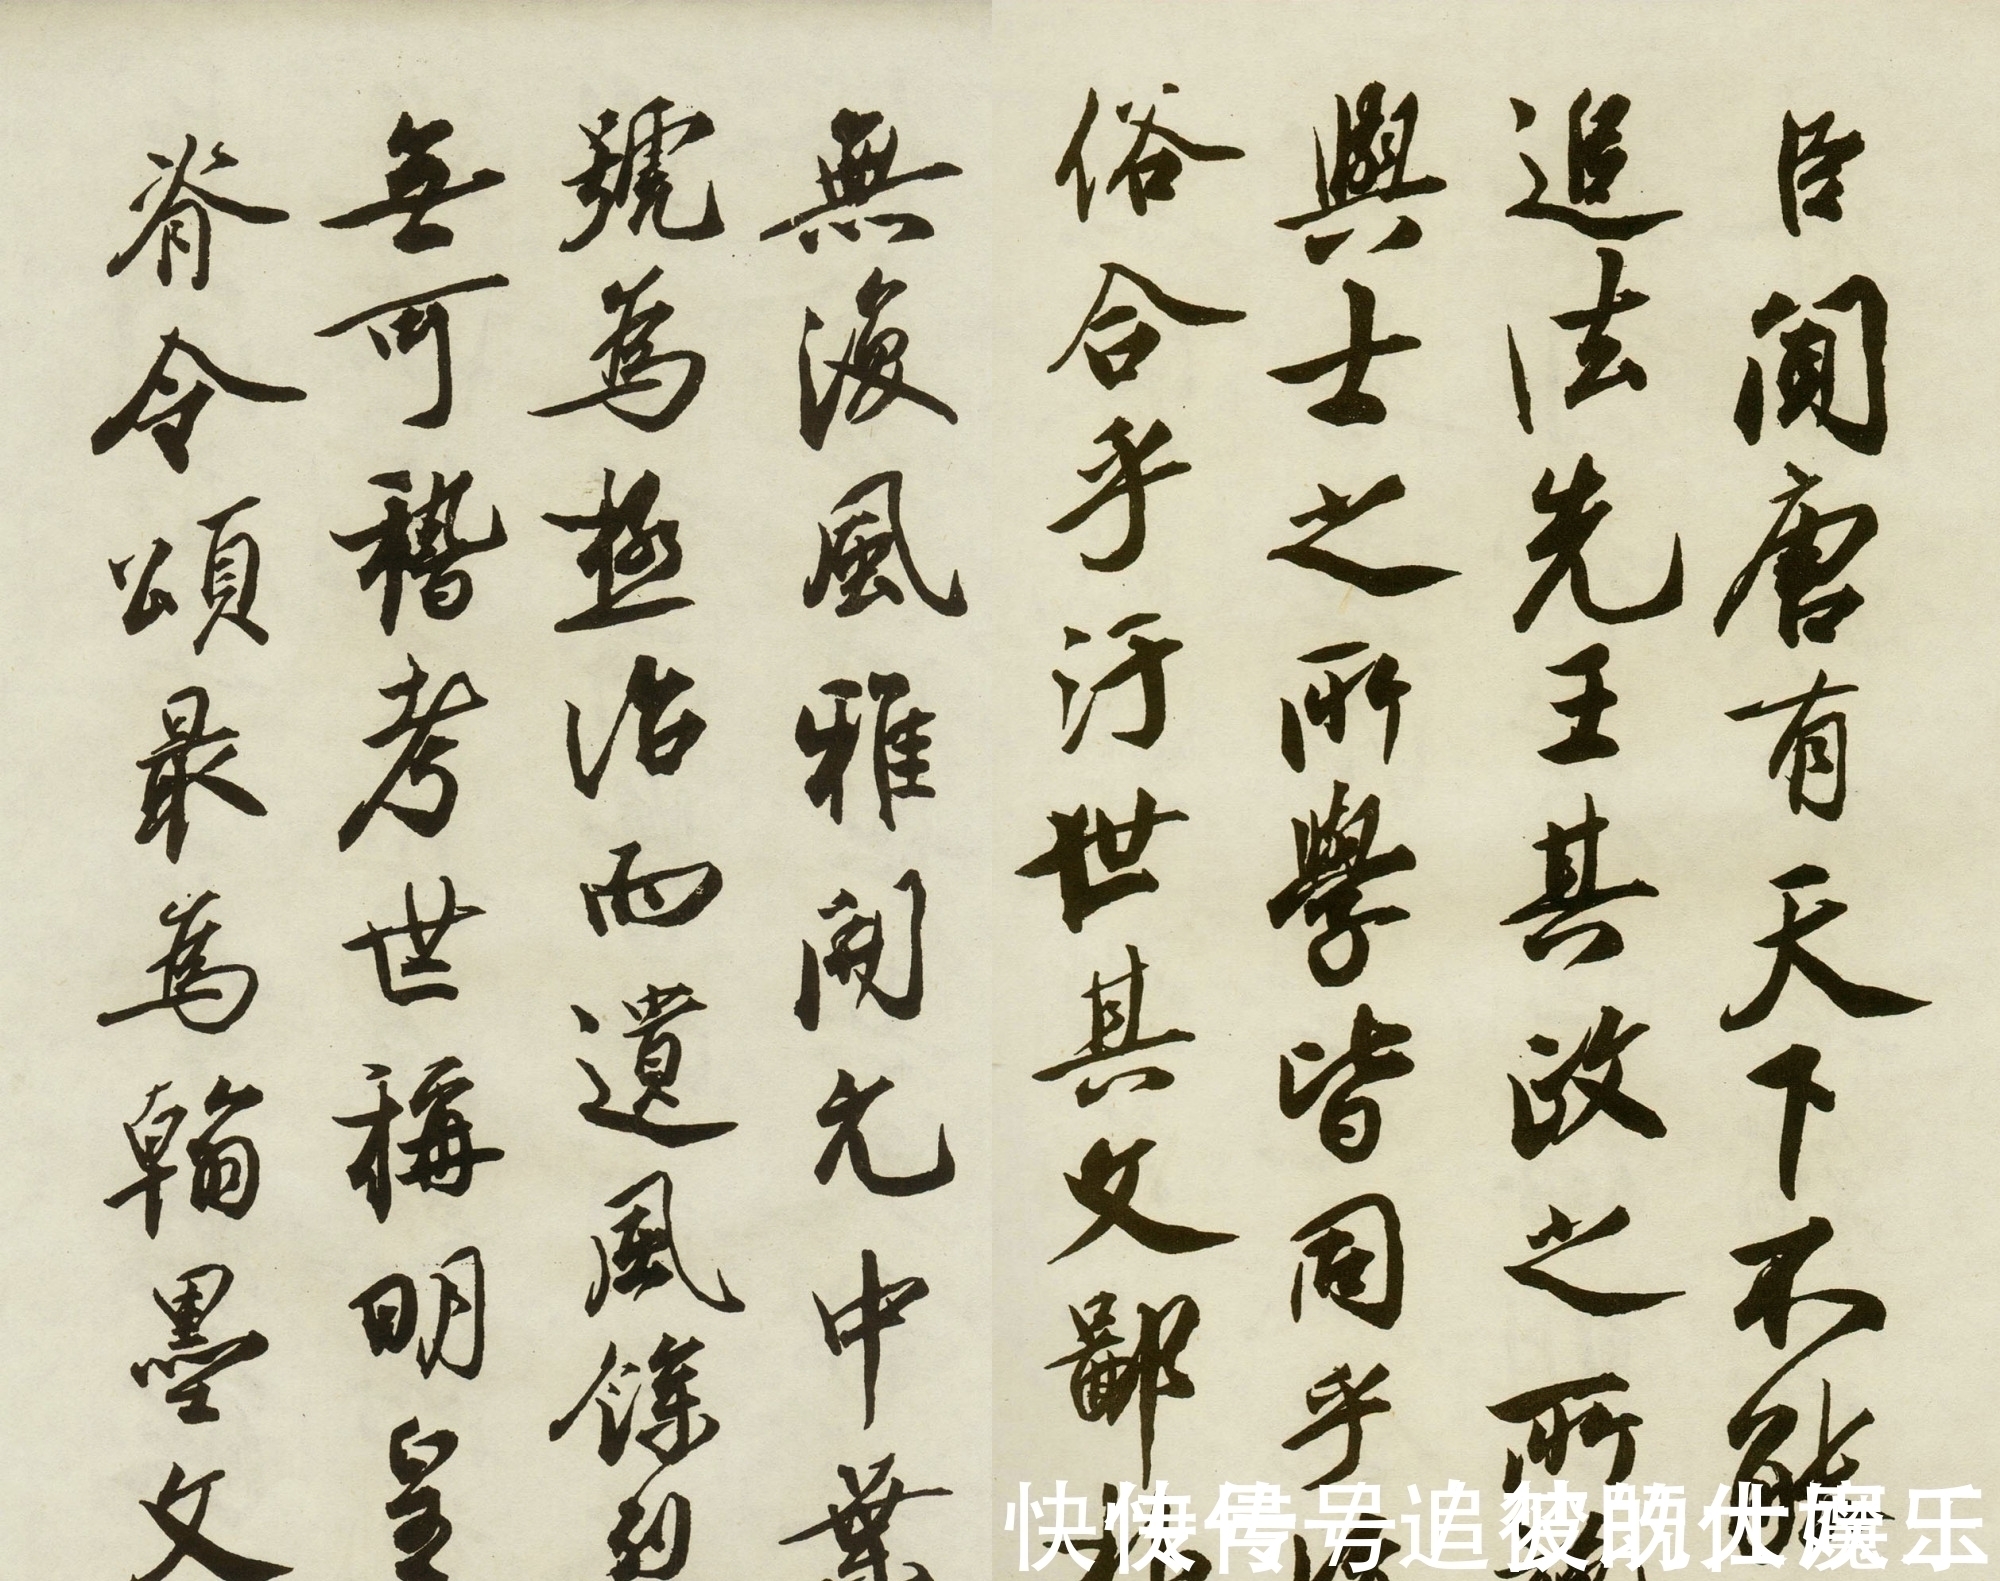 臣聞唐有天下不能
追法先王其政之所
興士之所學皆同乎
俗合乎汙世其文鄙
無復風雅開元中葉
號為極治而遺風餘烈
無可稽考世稱明皇
脊令頌最為翰墨文